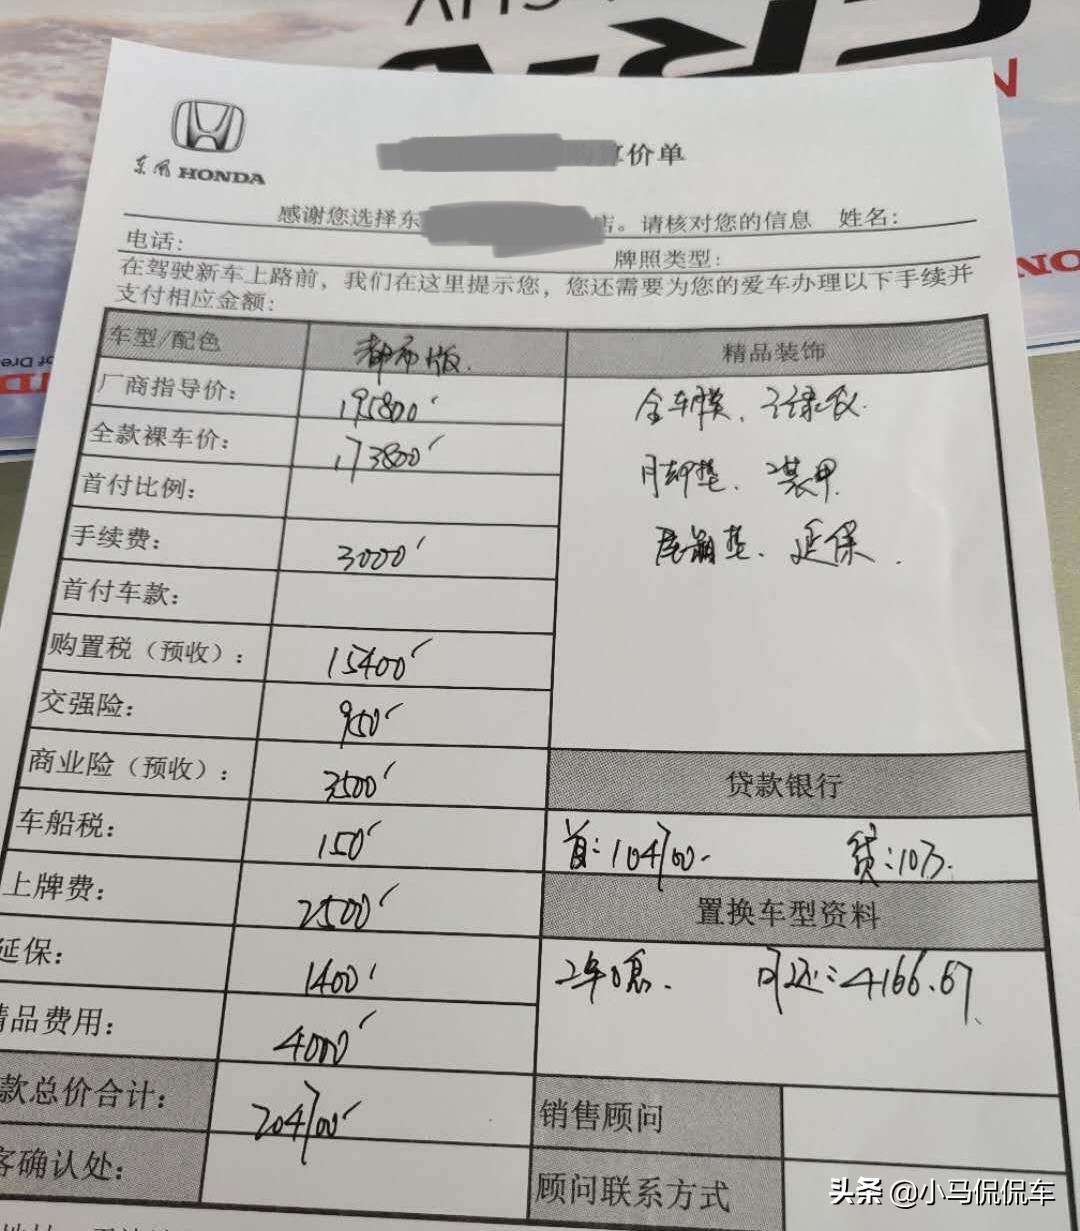 CR-V
东风 HONDA
算价单
感谢您选择东 店。请核对您的信息 姓名:
电话: 牌照类型:
在驾驶新车上路前，我们在这里提示您，您还需要为您的爱车办理以下手续并
支付相应金额:
车型/配色 都市版. 精品装饰
厂商指导价: 195800
全车膜、记录仪.
全款裸车价: 173800
脚垫、装甲
首付比例:
手续费: 3000
尾箱垫、延保.
首付车款:
购置税（预收）: 15400
交强险: 950
商业险（预收）: 3500
贷款银行
车船税: 150
首:104700- 贷:10万.
上牌费: 2500
置换车型资料
延保: 1400
2年0息. 月还:4166.67
精品费用: 4000
款总价合计: 204700
销售顾问
客确认处:
顾问联系方式
头条 @小马侃侃车